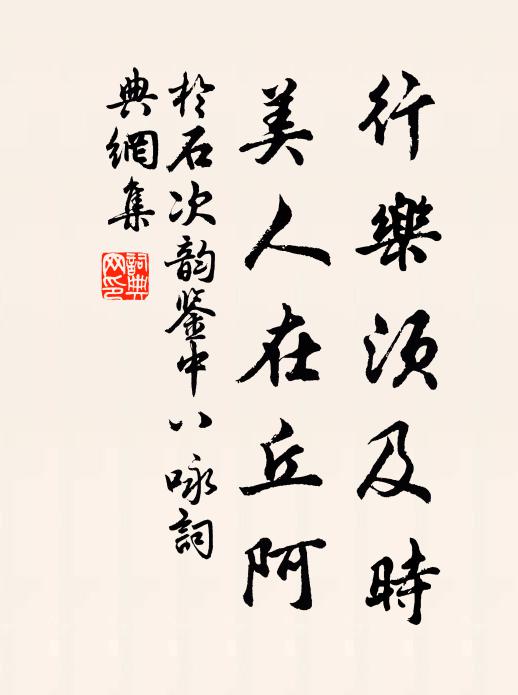 行樂須及時
美人在丘阿
於石次韵鉴中八咏詞
典網集
詞典网印